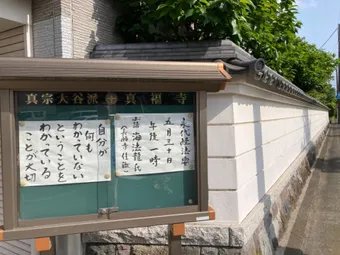 真宗大谷派 真福寺
永代経法要
五月三十日
午後一時
海法龍氏
自分が
何も
わかっていない
ということを
わかっている
ことが大切